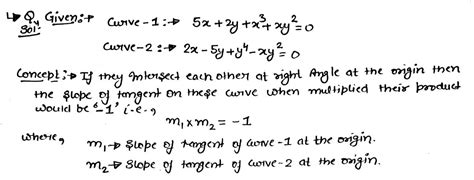 ↳ Q. Given:→ Curve-1:→ 5x+2y+x³+xy²=0
Sol:- Curve-2:→ 2x-5y+y⁴-xy²=0
Concept:→ If they intersect each other at right Angle at the origin then
the slope of tangent on these curve when multiplied their product
would be "-1" i.e.,
m₁×m₂ = -1
where,
m₁→ Slope of tangent of curve-1 at the origin.
m₂→ Slope of tangent of curve-2 at the origin.